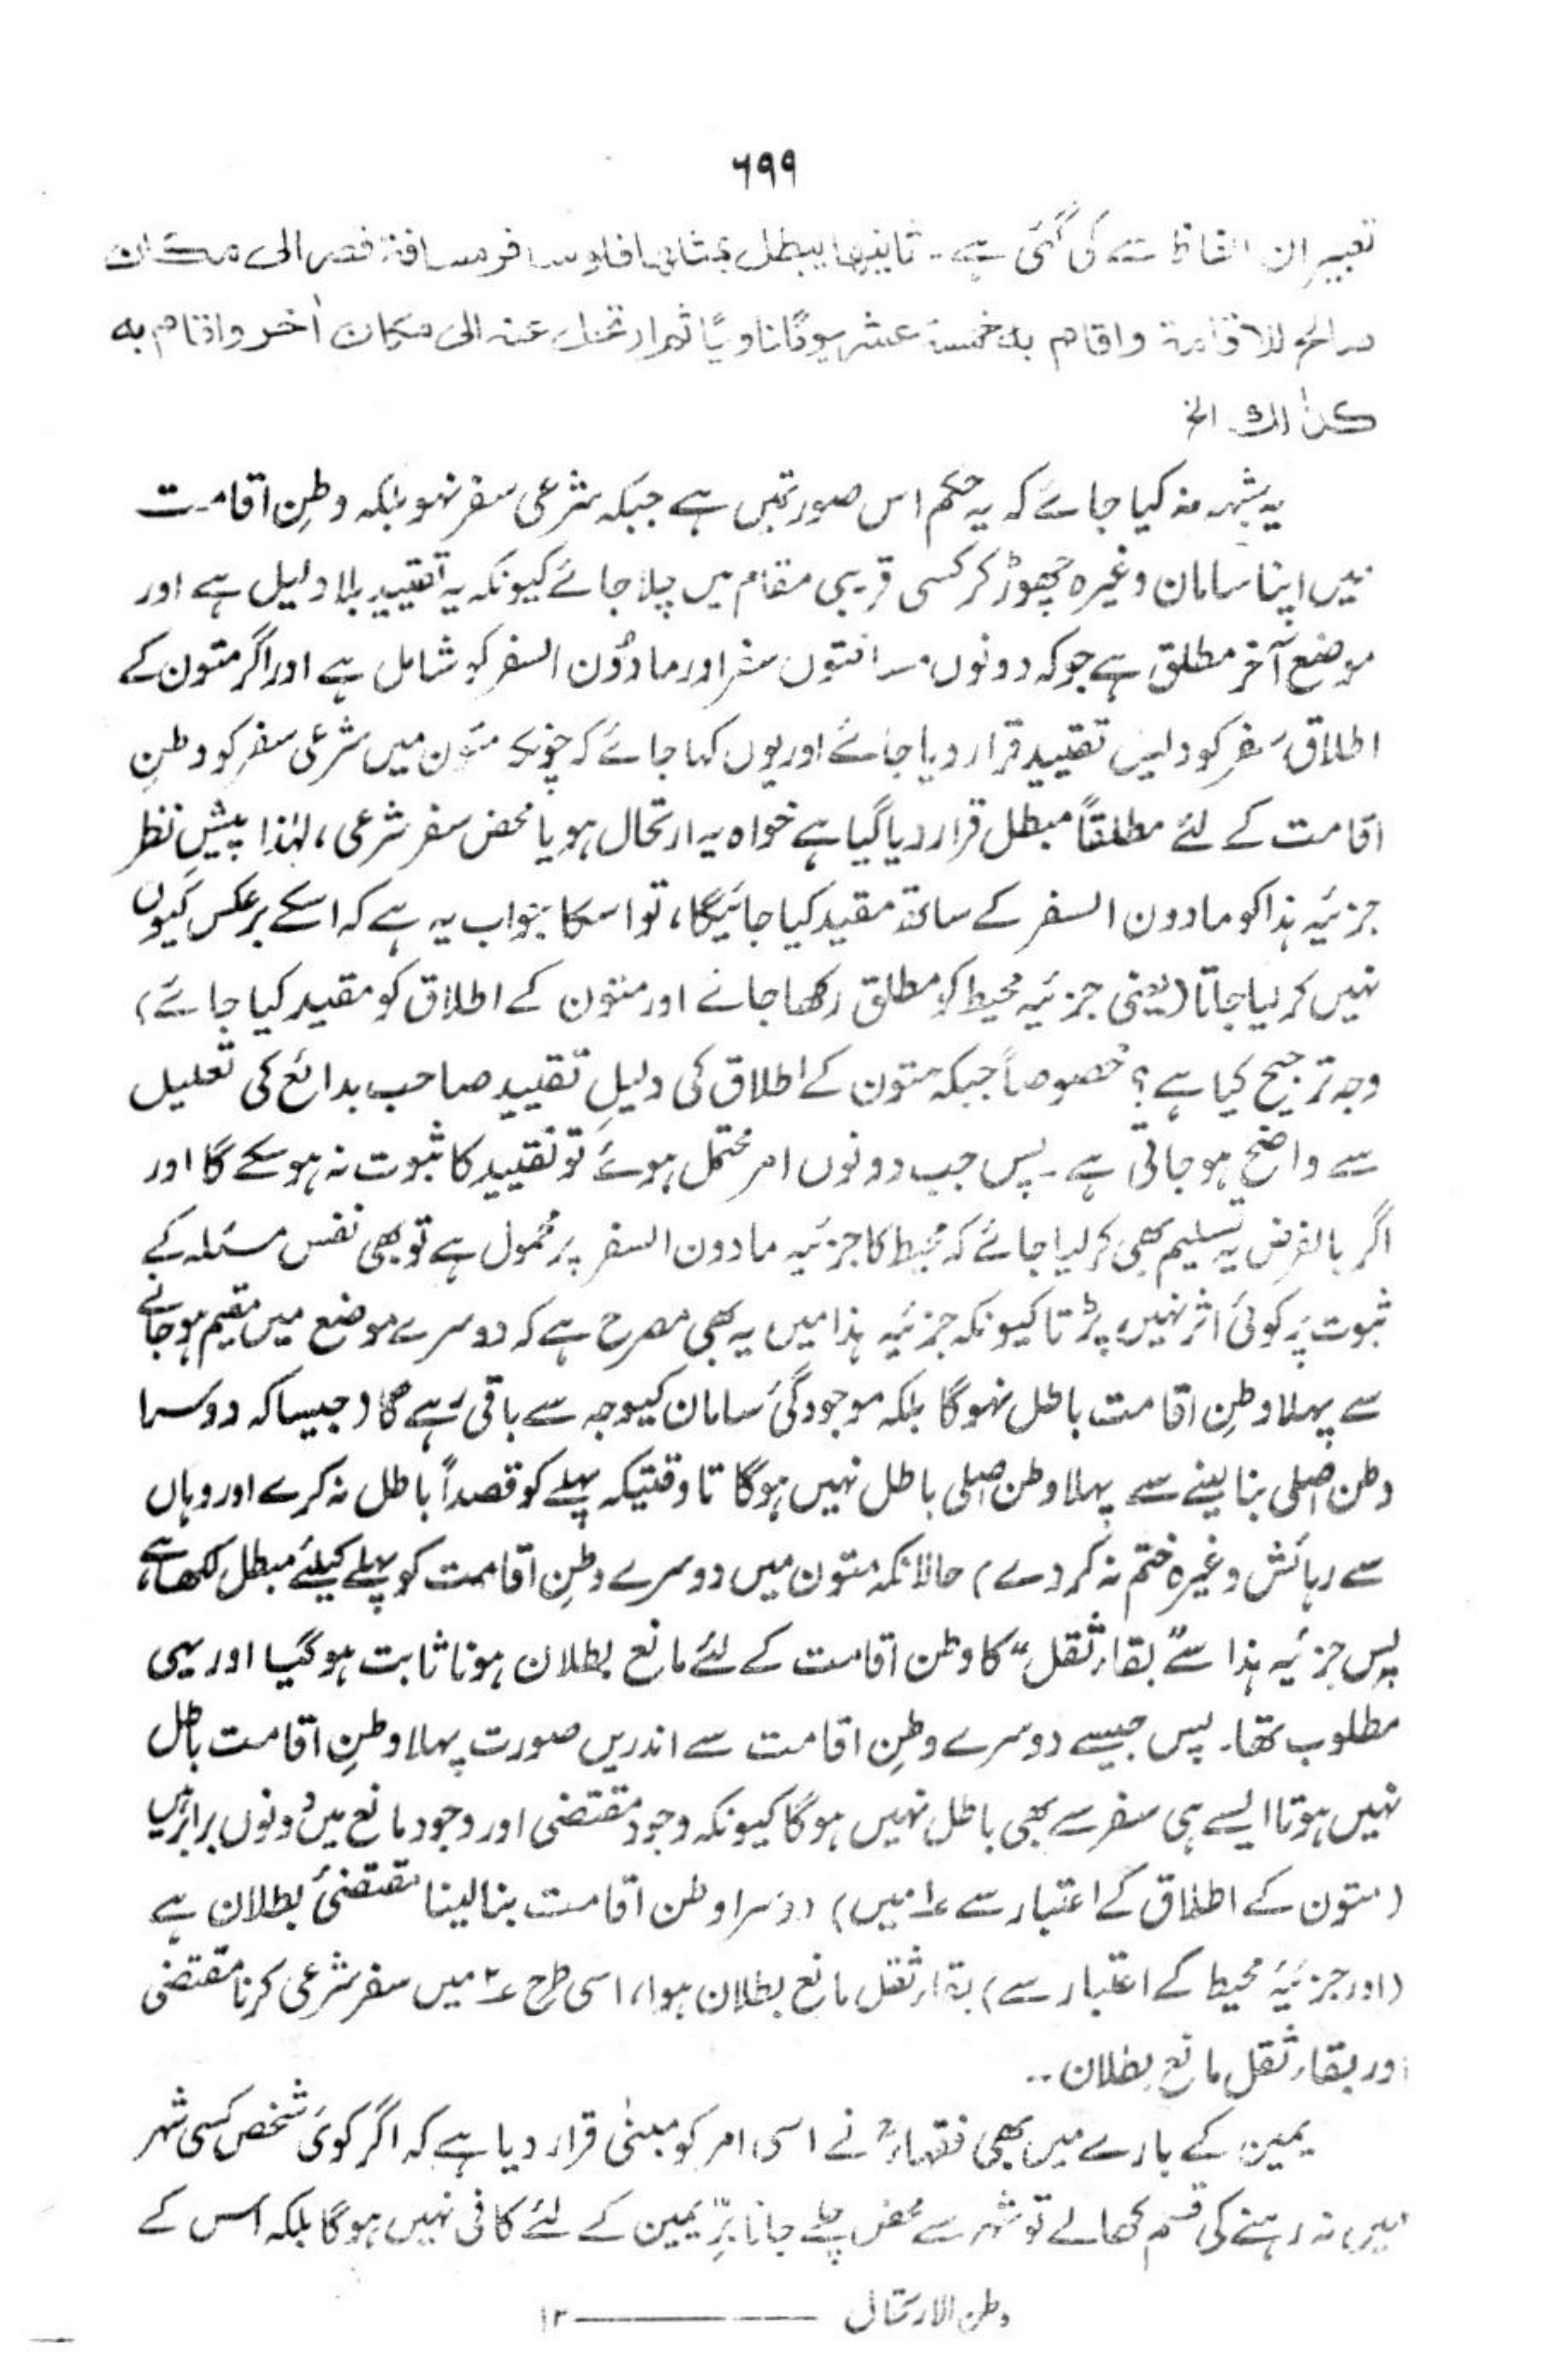 ۶۹۹
تعبیر ان الفاظ سے کی گئی ہے۔ ثانیہا یبطل بمثلہ فلو سافر مسافۃ قصر الی مکان
صالح للاقامۃ واقام بہ خمسۃ عشر یومًا ناویًا ثم ارتحل عنہ الی مکان اٰخر واقام بہ
کذٰلک الخ
یہ شبہ نہ کیا جائے کہ یہ حکم اس صورتمیں ہے جبکہ شرعی سفر نہو بلکہ وطنِ اقامت
میں اپنا سامان وغیرہ چھوڑ کر کسی قریبی مقام میں چلا جائے کیونکہ یہ تقیید بلا دلیل ہے اور
موضع آخر مطلق ہے جو کہ دونوں مسافتوں سفر اور مادُون السفر کو شامل ہے اور اگر متون کے
اطلاقِ سَفر کو دلیل تقیید قرار دیا جائے اور یوں کہا جائے کہ چونکہ متون میں شرعی سفر کو وطنِ
اقامت کے لئے مطلقاً مبطل قرار دیا گیا ہے خواہ یہ ارتحال ہو یا محض سفر شرعی، لہٰذا پیشِ نظر
جزئیہ ہذا کو مادون السفر کے ساتھ مقید کیا جائیگا، تو اسکا جواب یہ ہے کہ اسکے برعکس کیوں
نہیں کر لیا جاتا (یعنی جزئیہ محیط کو مطلق رکھا جائے اور متون کے اطلاق کو مقید کیا جائے)
وجہ ترجیح کیا ہے؟ خصوصاً جبکہ متون کے اطلاق کی دلیلِ تقیید صاحب بدائع کی تعلیل
سے واضح ہو جاتی ہے۔ پس جب دونوں امر محتمل ہوئے تو تقیید کا ثبوت نہ ہو سکے گا اور
اگر بالفرض یہ تسلیم بھی کر لیا جائے کہ محیط کا جزئیہ مادون السفر پر محمول ہے تو بھی نفس مسئلہ کے
ثبوت پر کوئی اثر نہیں پڑتا کیونکہ جزئیہ ہذا میں یہ بھی مصرح ہے کہ دوسرے موضع میں مقیم ہو جانے
سے پہلا وطنِ اقامت باطل نہوگا بلکہ موجودگیٔ سامان کیوجہ سے باقی رہے گا (جیسا کہ دوسرا
وطن اصلی بنا لینے سے پہلا وطن اصلی باطل نہیں ہوگا تا وقتیکہ پہلے کو قصداً باطل نہ کرے اور وہاں
سے رہائش وغیرہ ختم نہ کر دے) حالانکہ متون میں دوسرے وطنِ اقامت کو پہلے کیلئے مبطل لکھا ہے،
پس جزئیہ ہذا سے "بقاء ثقل" کا وطن اقامت کے لئے مانع بطلان ہونا ثابت ہو گیا اور یہی
مطلوب تھا۔ پس جیسے دوسرے وطنِ اقامت سے اندریں صورت پہلا وطنِ اقامت باطل
نہیں ہوتا ایسے ہی سفر سے بھی باطل نہیں ہوگا کیونکہ وجود مقتضی اور وجود مانع میں دونوں برابر ہیں
(متون کے اطلاق کے اعتبار سے ۱؎ میں) دوسرا وطن اقامت بنا لینا مقتضیٔ بطلان ہے
(اور جزئیۂ محیط کے اعتبار سے) بقاء ثقل مانع بطلان ہوا، اسی طرح ۲؎ میں سفر شرعی کرنا مقتضی
اور بقاء ثقل مانع بطلان۔۔
یمین کے بارے میں بھی فقہاءؒ نے اسی امر کو مبنیٰ قرار دیا ہے کہ اگر کوئی شخص کسی شہر
میں نہ رہنے کی قسم کھالے تو شہر سے محض چلے جانا برِّ یمین کے لئے کافی نہیں ہوگا بلکہ اُس کے
وطن الارتحال ——— ۱۳